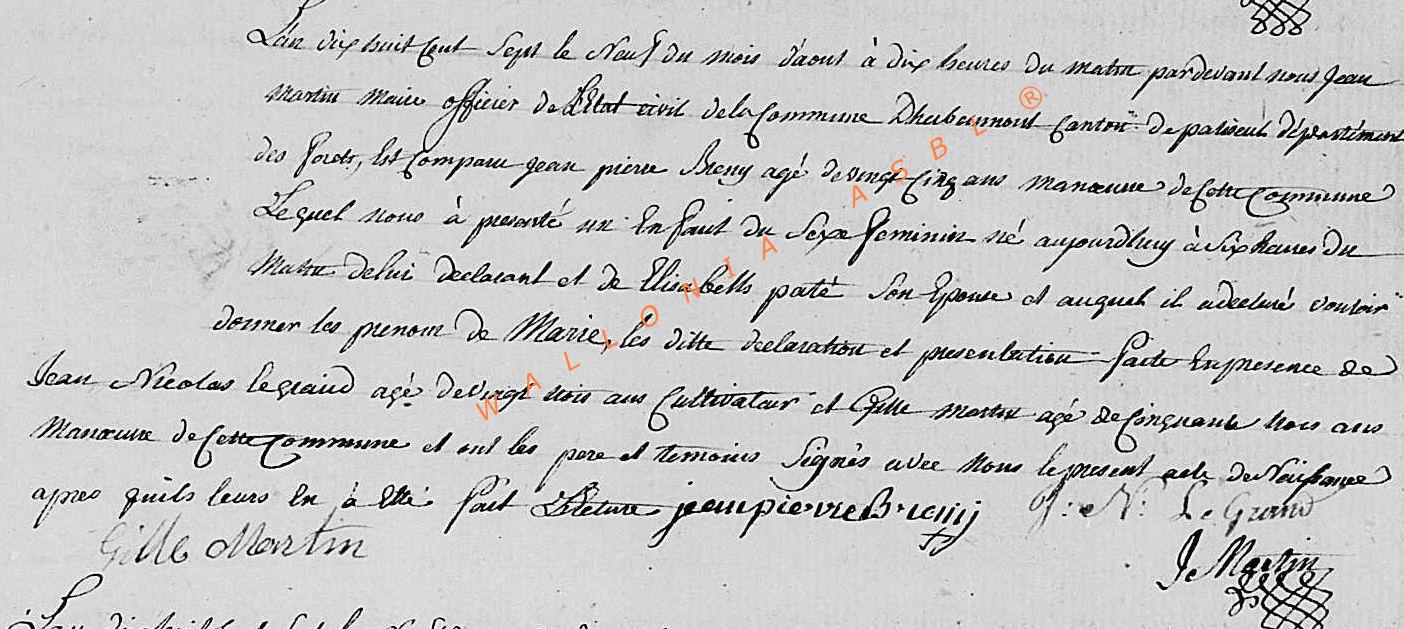 L'an dix huit cent sept le Neuf du mois d'aout à dix heures du matin pardevant nous Jean
Martin Maire officier de L'Etat civil de la Commune D'huberemont Canton de paliseul département
des forets, Est Comparu Jean pierre Bremy agé de vingt Cinq ans manœuvre de Cette Commune
Lequel nous à presenté un Enfant du Sexe feminin né aujourdhuy à Six heures du
Matin de lui declarant et de Elisabeth paté Son Epouse et auquel il a declaré vouloir
donner les prenom de Marie, les ditte declaration et presentation faite En presence de
Jean Nicolas legrand agé de vingt trois ans Cultivateur et Gille martin agé de Cinquante trois ans
Manœuvre de Cette Commune et ont les pere et temoins Signés avec Nous le present acte de Naissance
apres quils leurs En à Eté fait Lecture jean pierre Bremy J: N: Le Grand
Gille Martin
J Martin
L'an dix huit Cent Sept le
WALLONIA ASBL ®